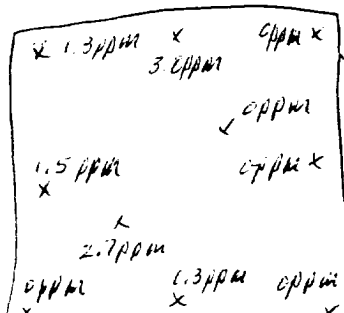 x 1.3ppm x 0ppm x
3.0ppm
0ppm
x
1.5ppm 0ppm x
x
x
2.7ppm
0ppm 1.3ppm 0ppm
x x x